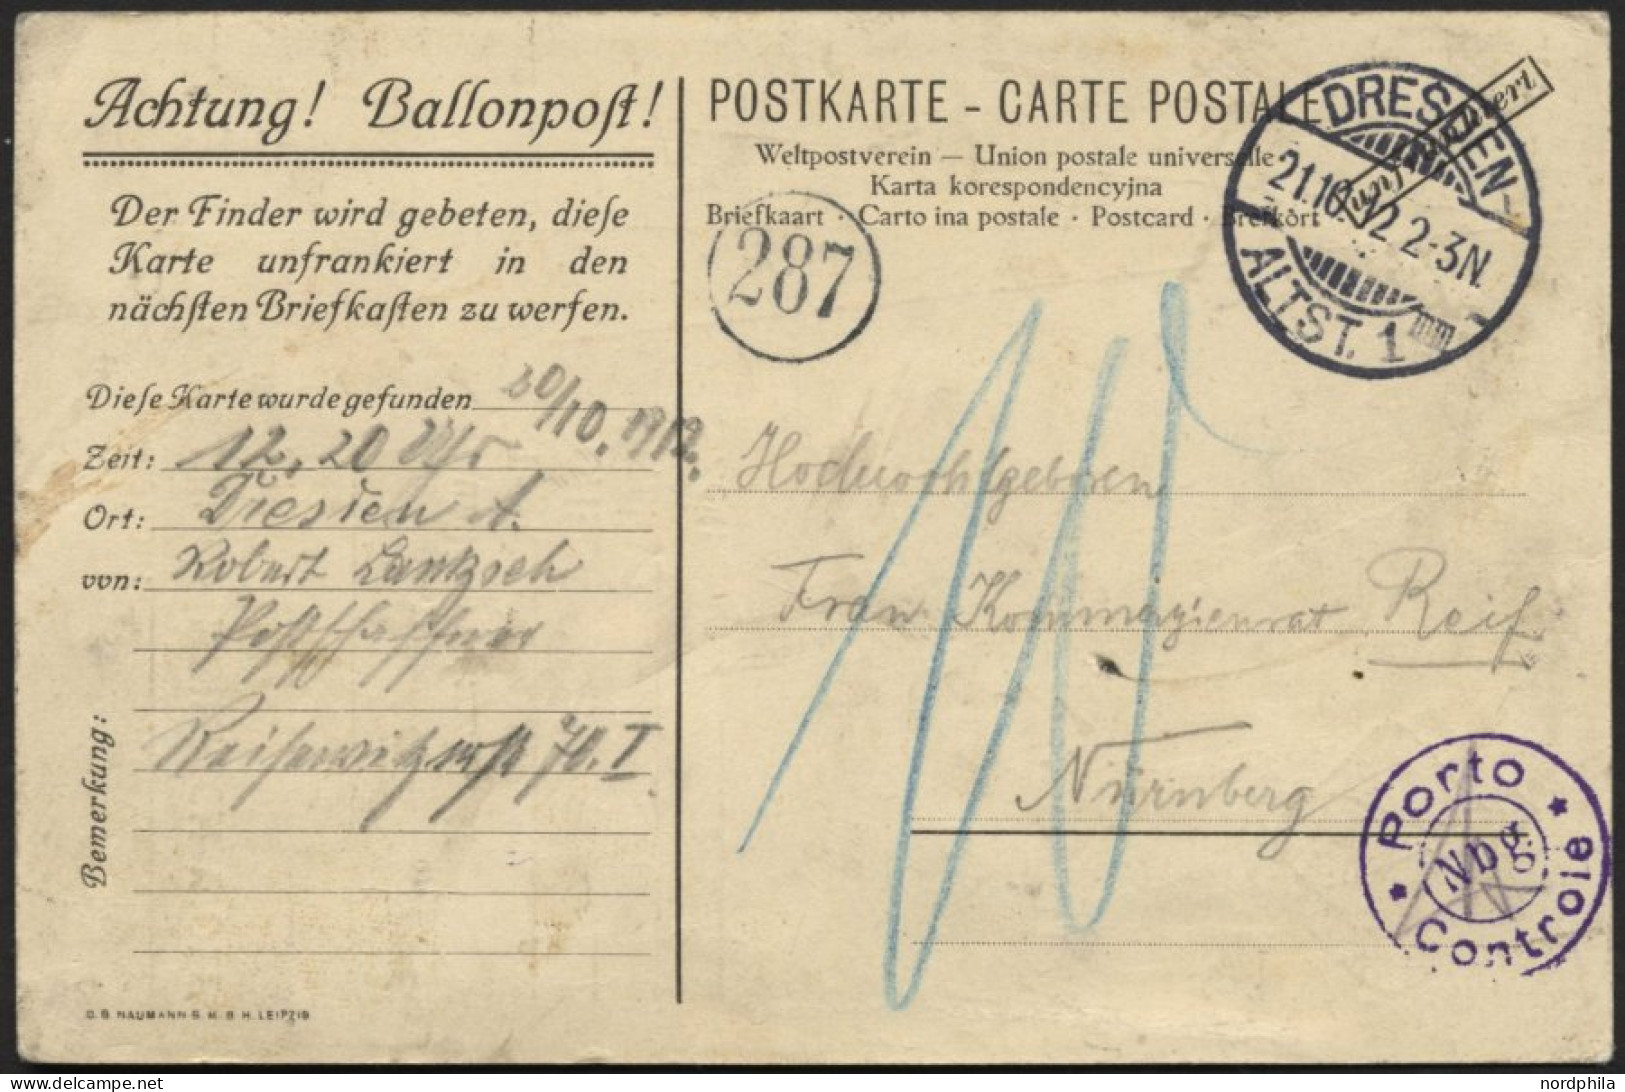 Achtung! Ballonpoſt!
Der Finder wird gebeten, dieſe
Karte unfrankiert in den
nächſten Briefkaſten zu werfen.
Dieſe Karte wurde gefunden 20/10. 1912.
Zeit: 12,20 Uhr
Ort: A.
von: Robert
Postschaffner
70. I
Bemerkung:
C. G. NAUMANN G. M. B. H. LEIPZIG
POSTKARTE - CARTE POSTALE
Weltpostverein — Union postale universelle
Karta korespondencyjna
Briefkaart · Carto ina postale · Postcard · Brefkort
287
DRESDEN-
21.10.12. 2-3N.
ALTST. 1
unfrankiert
10
Hochwohlgeborene
Frau Kommerzienrat Reif
Nürnberg
Porto
Nbg
Controle
nordphila